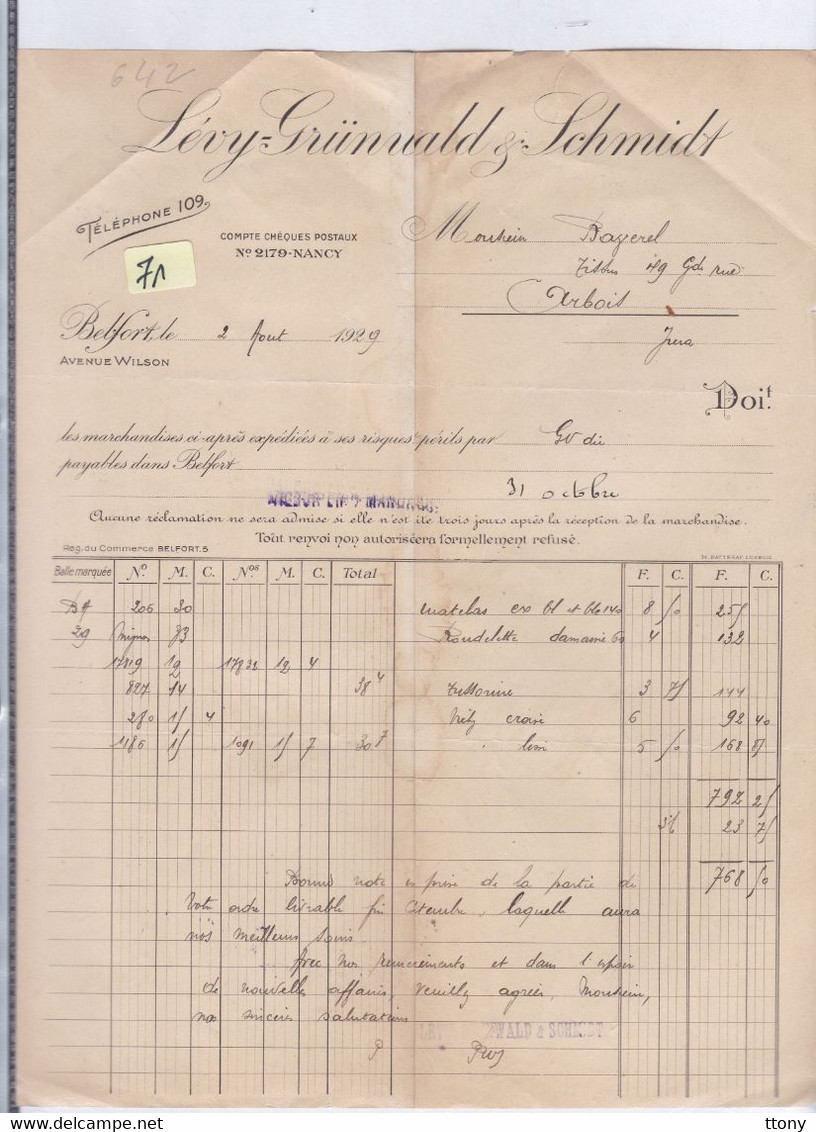 642
Lévy-Grünwald & Schmidt
TÉLÉPHONE 109
COMPTE CHÈQUES POSTAUX
Nº 2179-NANCY
71
Monsieur Bayerel
Tissus 49 Gde rue
Arbois
Jura
Belfort, le 2 Aout 1929
AVENUE WILSON
Doit
les marchandises ci-après expédiées à ses risques & périls par GV due
payables dans Belfort
31 octobre
Aucune réclamation ne sera admise si elle n'est ite trois jours après la réception de la marchandise.
Tout renvoi non autorisé sera formellement refusé.
Reg. du Commerce BELFORT. 5
Balle marquée Nº M. C. Nos M. C. Total F. C. F. C.
206 30 matelas 140 8 50 255
29 33 damassé 60 4 132
17819 12 17832 12 4
827 14 38 4 3 75 144
280 15 4 croisé 6 92 40
1186 15 1091 15 7 30 7 5 50 168 85
792 25
3% 23 75
768 50
Bonne note est prise de la partie de
votre ordre livrable fin , laquelle aura
nos meilleurs soins
Avec nos remerciements et dans l'espoir
de nouvelles affaires, veuillez agréer, Monsieur,
nos sincères salutations
WALD & SCHMIDT
P
ttony
delcampe.net